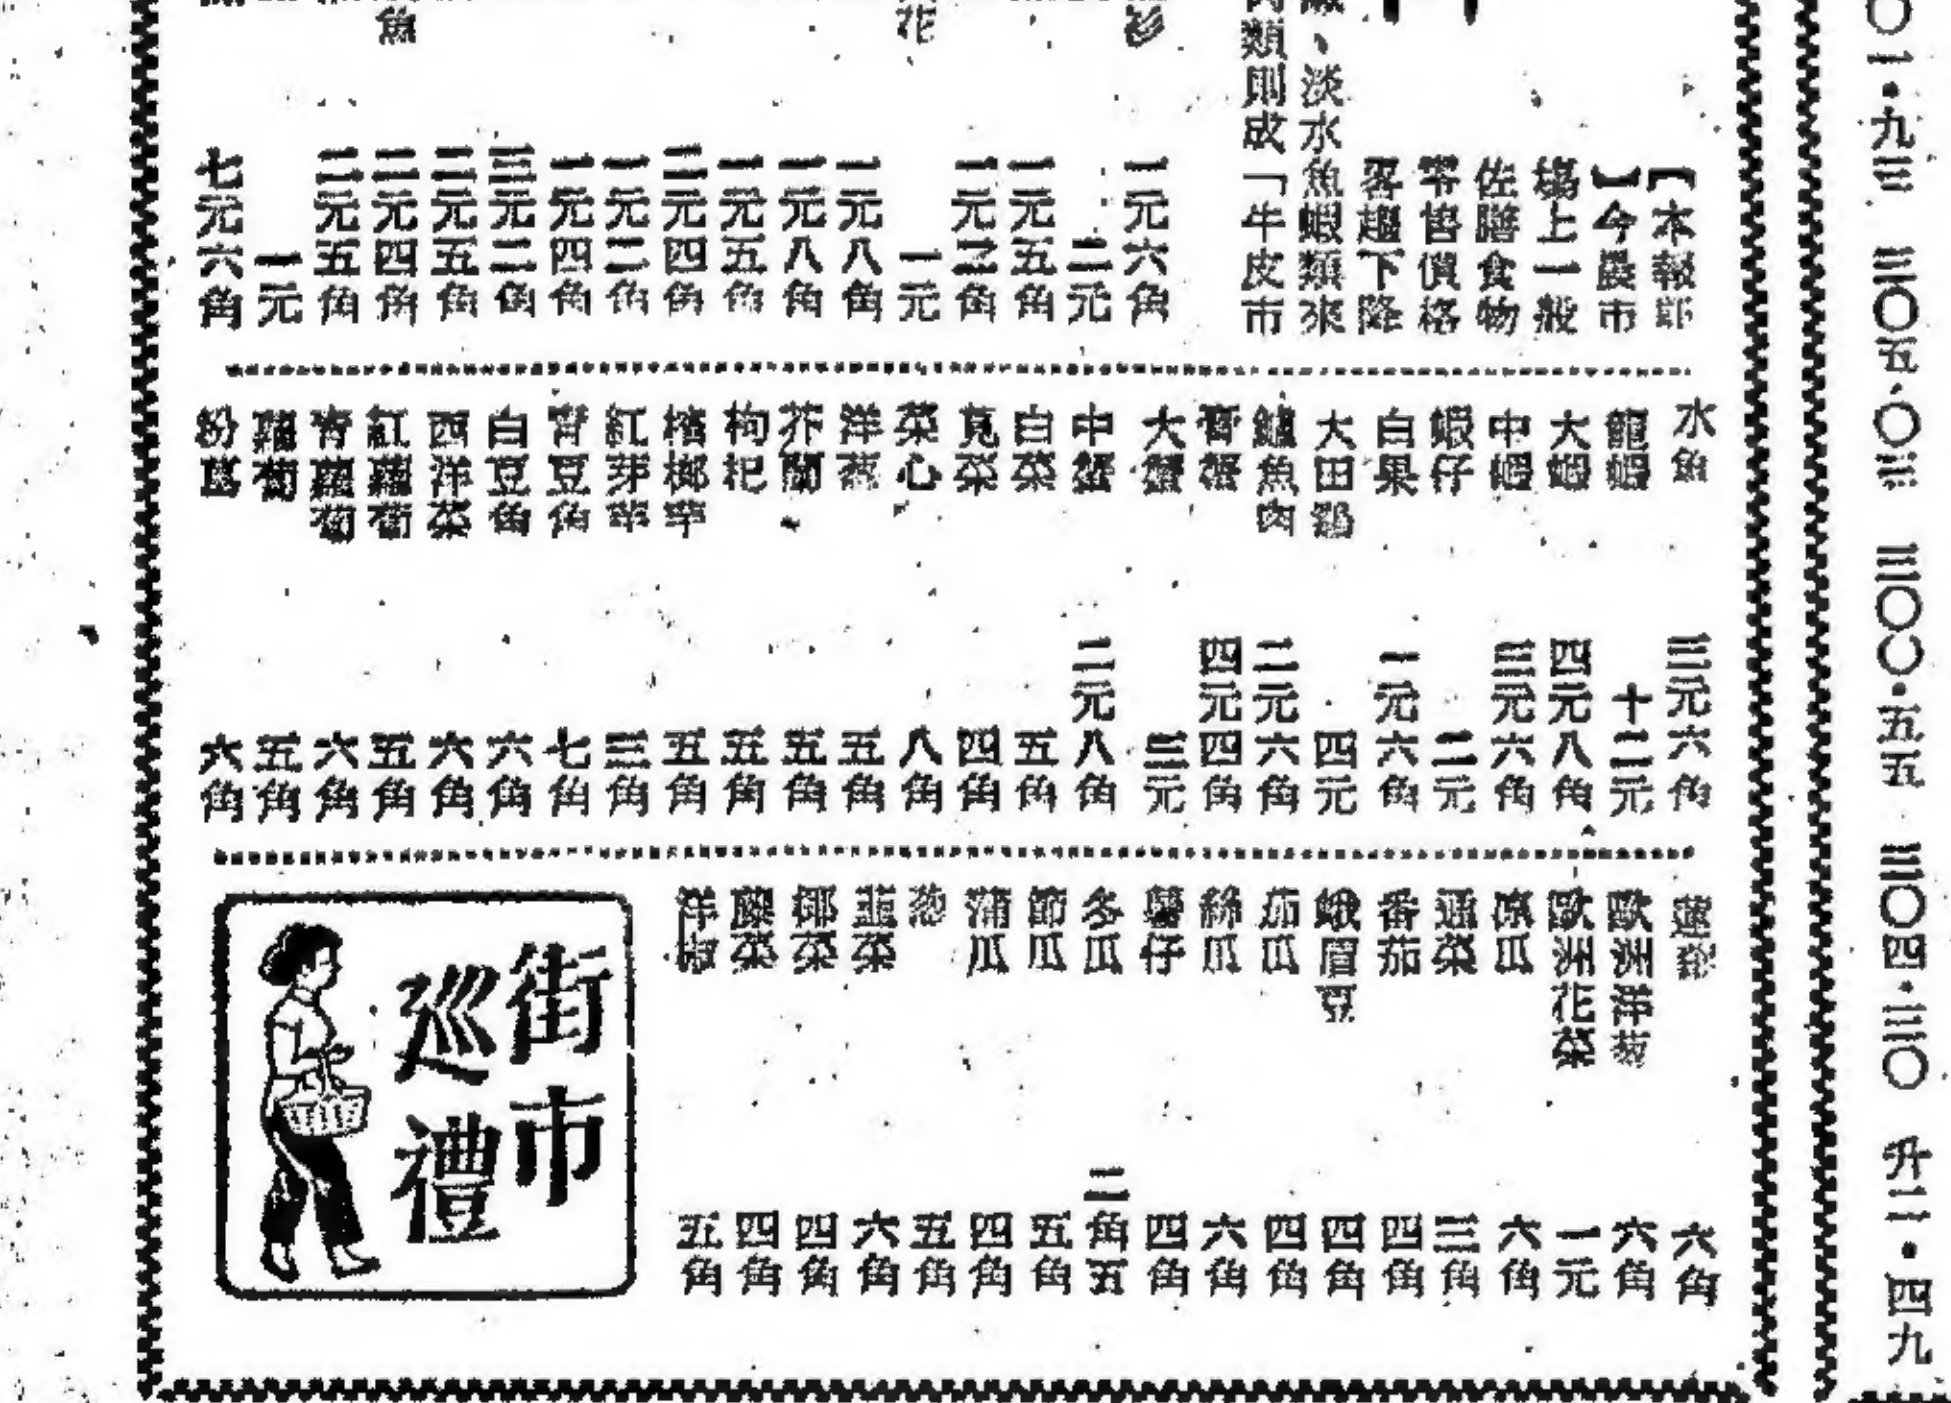 【本報訊
】今晨市
場上一般
佐膳食物
零售價格
畧趨下降
、淡水魚蝦類來
肉類則成「牛皮市
一元六角
二元
一元五角
一元二角
一元
一元八角
一元八角
一元五角
二元四角
一元二角
一元四角
三元二角
二元五角
二元四角
二元五角
一元
七元六角
水魚 三元六角
龍蝦 十二元
大蝦 四元八角
中蝦 三元六角
蝦仔 二元
白果 一元六角
大田雞 四元
鱸魚肉 二元六角
膏蟹 四元四角
大蟹 三元
中蟹 二元八角
白菜 五角
莧菜 四角
菜心 八角
洋葱 五角
芥蘭 五角
枸杞 五角
檳榔芋 五角
紅芽芋 三角
青豆角 七角
白豆角 六角
西洋菜 六角
紅蘿蔔 五角
青蘿蔔 六角
蘿蔔 五角
粉葛 六角
蓮藕 六角
歐洲洋葱 六角
歐洲花菜 一元
凉瓜 六角
通菜 三角
番茄 四角
蛾眉豆 四角
茄瓜 四角
絲瓜 六角
薯仔 四角
冬瓜 二角五
節瓜 五角
蒲瓜 四角
葱 五角
韮菜 六角
椰菜 四角
藤菜 四角
洋椒 五角
街市
巡禮